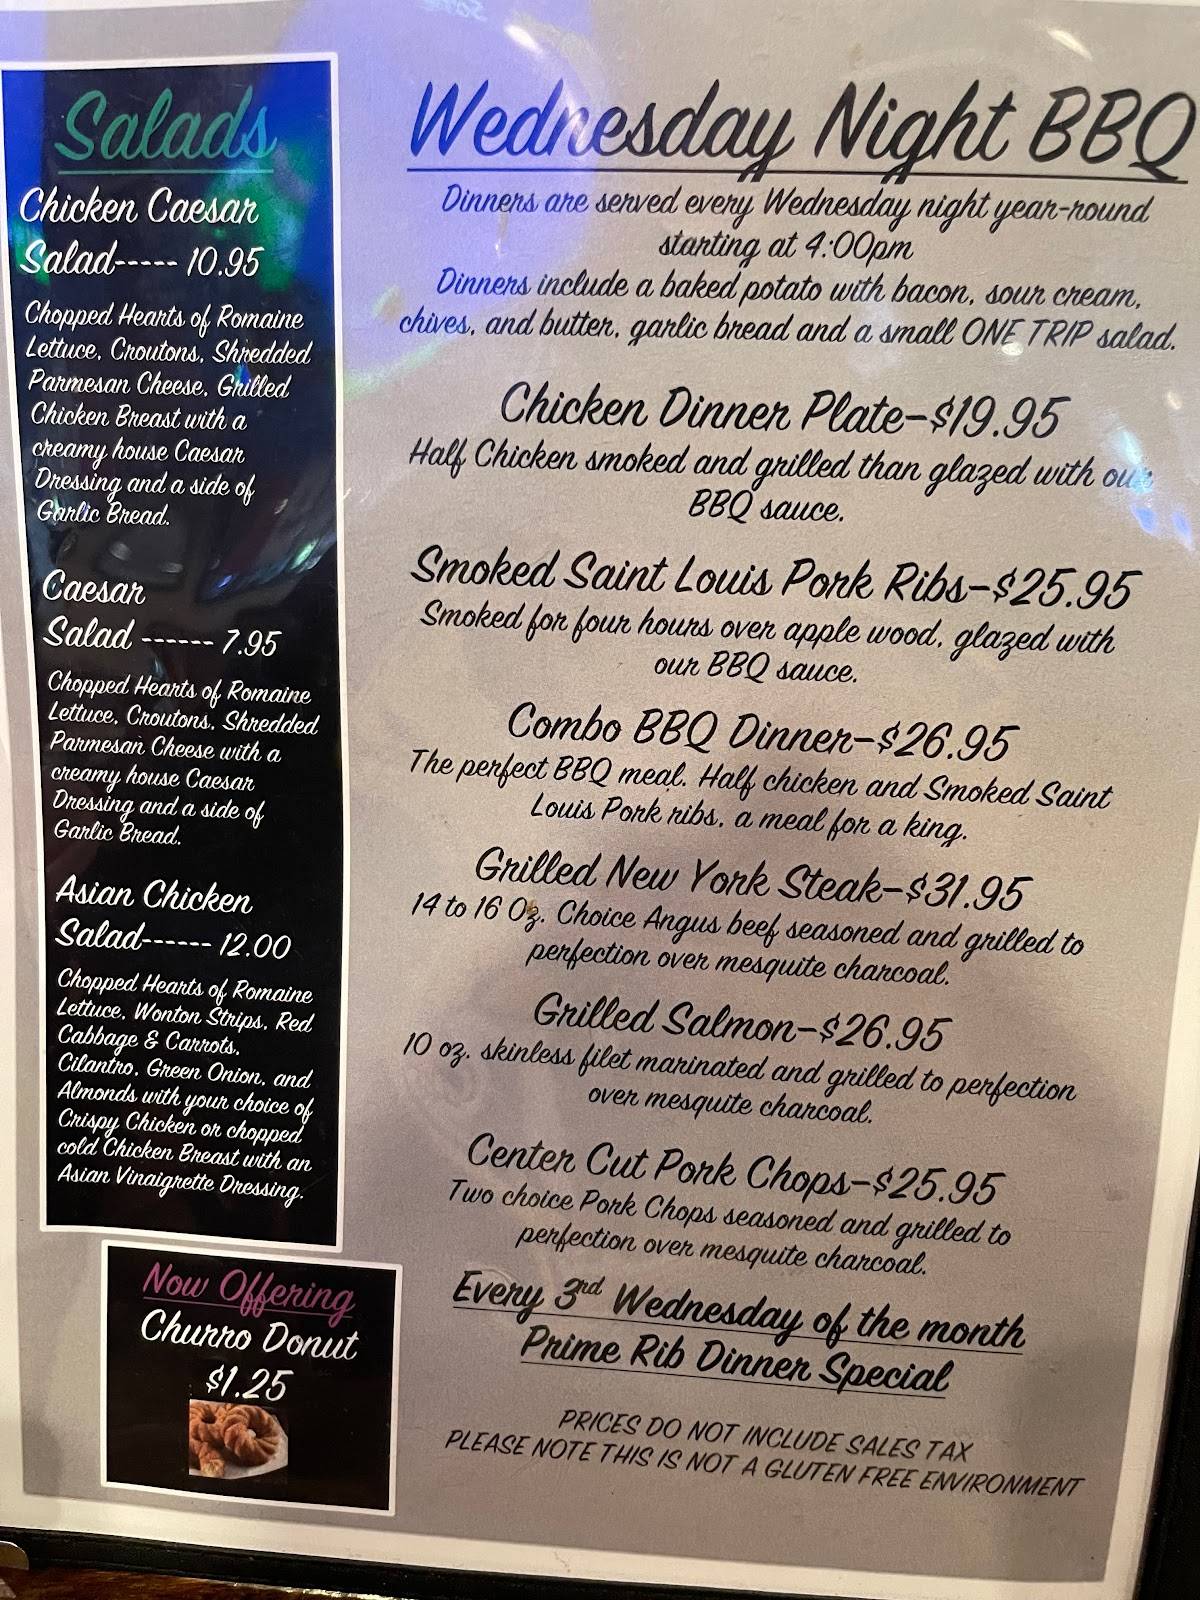 Salads
Chicken Caesar
Salad----- 10.95
Chopped Hearts of Romaine
Lettuce, Croutons, Shredded
Parmesan Cheese, Grilled
Chicken Breast with a
creamy house Caesar
Dressing and a side of
Garlic Bread.
Caesar
Salad ------ 7.95
Chopped Hearts of Romaine
Lettuce, Croutons, Shredded
Parmesan Cheese with a
creamy house Caesar
Dressing and a side of
Garlic Bread.
Asian Chicken
Salad------ 12.00
Chopped Hearts of Romaine
Lettuce, Wonton Strips, Red
Cabbage & Carrots,
Cilantro, Green Onion, and
Almonds with your choice of
Crispy Chicken or chopped
cold Chicken Breast with an
Asian Vinaigrette Dressing.
Now Offering
Churro Donut
$1.25
Wednesday Night BBQ
Dinners are served every Wednesday night year-round
starting at 4:00pm
Dinners include a baked potato with bacon, sour cream,
chives, and butter, garlic bread and a small ONE TRIP salad.
Chicken Dinner Plate-$19.95
Half Chicken smoked and grilled than glazed with our
BBQ sauce.
Smoked Saint Louis Pork Ribs-$25.95
Smoked for four hours over apple wood, glazed with
our BBQ sauce.
Combo BBQ Dinner-$26.95
The perfect BBQ meal. Half chicken and Smoked Saint
Louis Pork ribs, a meal for a king.
Grilled New York Steak-$31.95
14 to 16 Oz. Choice Angus beef seasoned and grilled to
perfection over mesquite charcoal.
Grilled Salmon-$26.95
10 oz. skinless filet marinated and grilled to perfection
over mesquite charcoal.
Center Cut Pork Chops-$25.95
Two choice Pork Chops seasoned and grilled to
perfection over mesquite charcoal.
Every 3rd Wednesday of the month
Prime Rib Dinner Special
PRICES DO NOT INCLUDE SALES TAX
PLEASE NOTE THIS IS NOT A GLUTEN FREE ENVIRONMENT